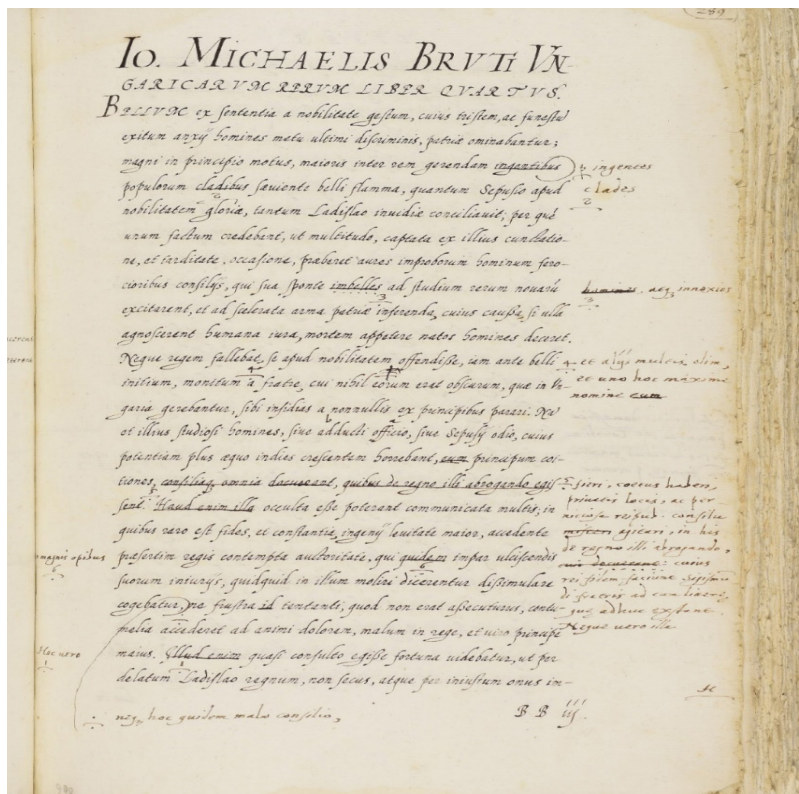 289
IO. MICHAELIS BRVTI VN-
GARICARVM RERVM LIBER QVARTVS.
BELLVM ex sententia a nobilitate gestum, cuius tristem, ac funestū
exitum anxij homines metu ultimi discriminis, patriæ ominabantur;
magni in principio motus, maiores inter rem gerendam ingentibus
populorum cladibus sæuiente belli flamma, quantum Sepusio apud
nobilitatem gloriæ, tantum Ladislao inuidiæ conciliauit; per quē
unum factum credebant, ut multitudo, captata ex illius cunctatio-
ne, et tarditate, occasione, præberet aures improborum hominum fero-
cioribus consilijs, qui sua sponte imbelles ad studium rerum nouarū
excitarent, et ad scelerate arma patriæ inferenda, cuius caussa, si ulla
agnoscerent humana iura, mortem appetere natos homines deceret.
Neque regem fallebat, se apud nobilitatem offendisse, iam ante belli
initium, monitum a fratre, cui nihil eorum erat obscurum, quæ in Vn-
garia gerebantur, sibi insidias a nonnullis ex principibus parari. Nā
et illius studiosi homines, siue adducti officio, siue Sepusij odio, cuius
potentiam plus æquo indies crescentem horrebant, eum principum coi-
tiones, consiliaq; omnia docuerant, quibus de regno illi abrogando egis-
sent. Haud enim illa occulta esse poterant communicata multis; in
quibus raro est fides, et constantia, ingenij leuitate maior, accedente
præsertim regis contempta auctoritate, qui quidem impar ulciscendis
suorum iniurijs, quidquid in illum moliri dicerentur dissimulare
cogebatur, ne frustra id tentanti, quod non erat assecuturus, contu-
melia accederet ad animi dolorem, malum in rege, et uiro principe
maius. Illud enim quasi consulto egisse fortuna uidebatur, ut per
delatum Ladislao regnum, non secus, atque per iniustum onus im-
neq; hoc quidem malo consilio,
BB iij.
ingentes
clades
2
homines. aeq; innoxios
3
4 et alijs multis olim,
et uno hoc maxime
nomine eum
fieri, coetus haberi,
priuatis locis, ac per-
niciosa reipub. consilia
misceri agitari, in his
de regno illi abrogando,
cuius
rei fidem faciunt
di fratris ad eum literæ,
quæ adhuc extant.
Neque uero illa
magnis opibus
6
Hec uero